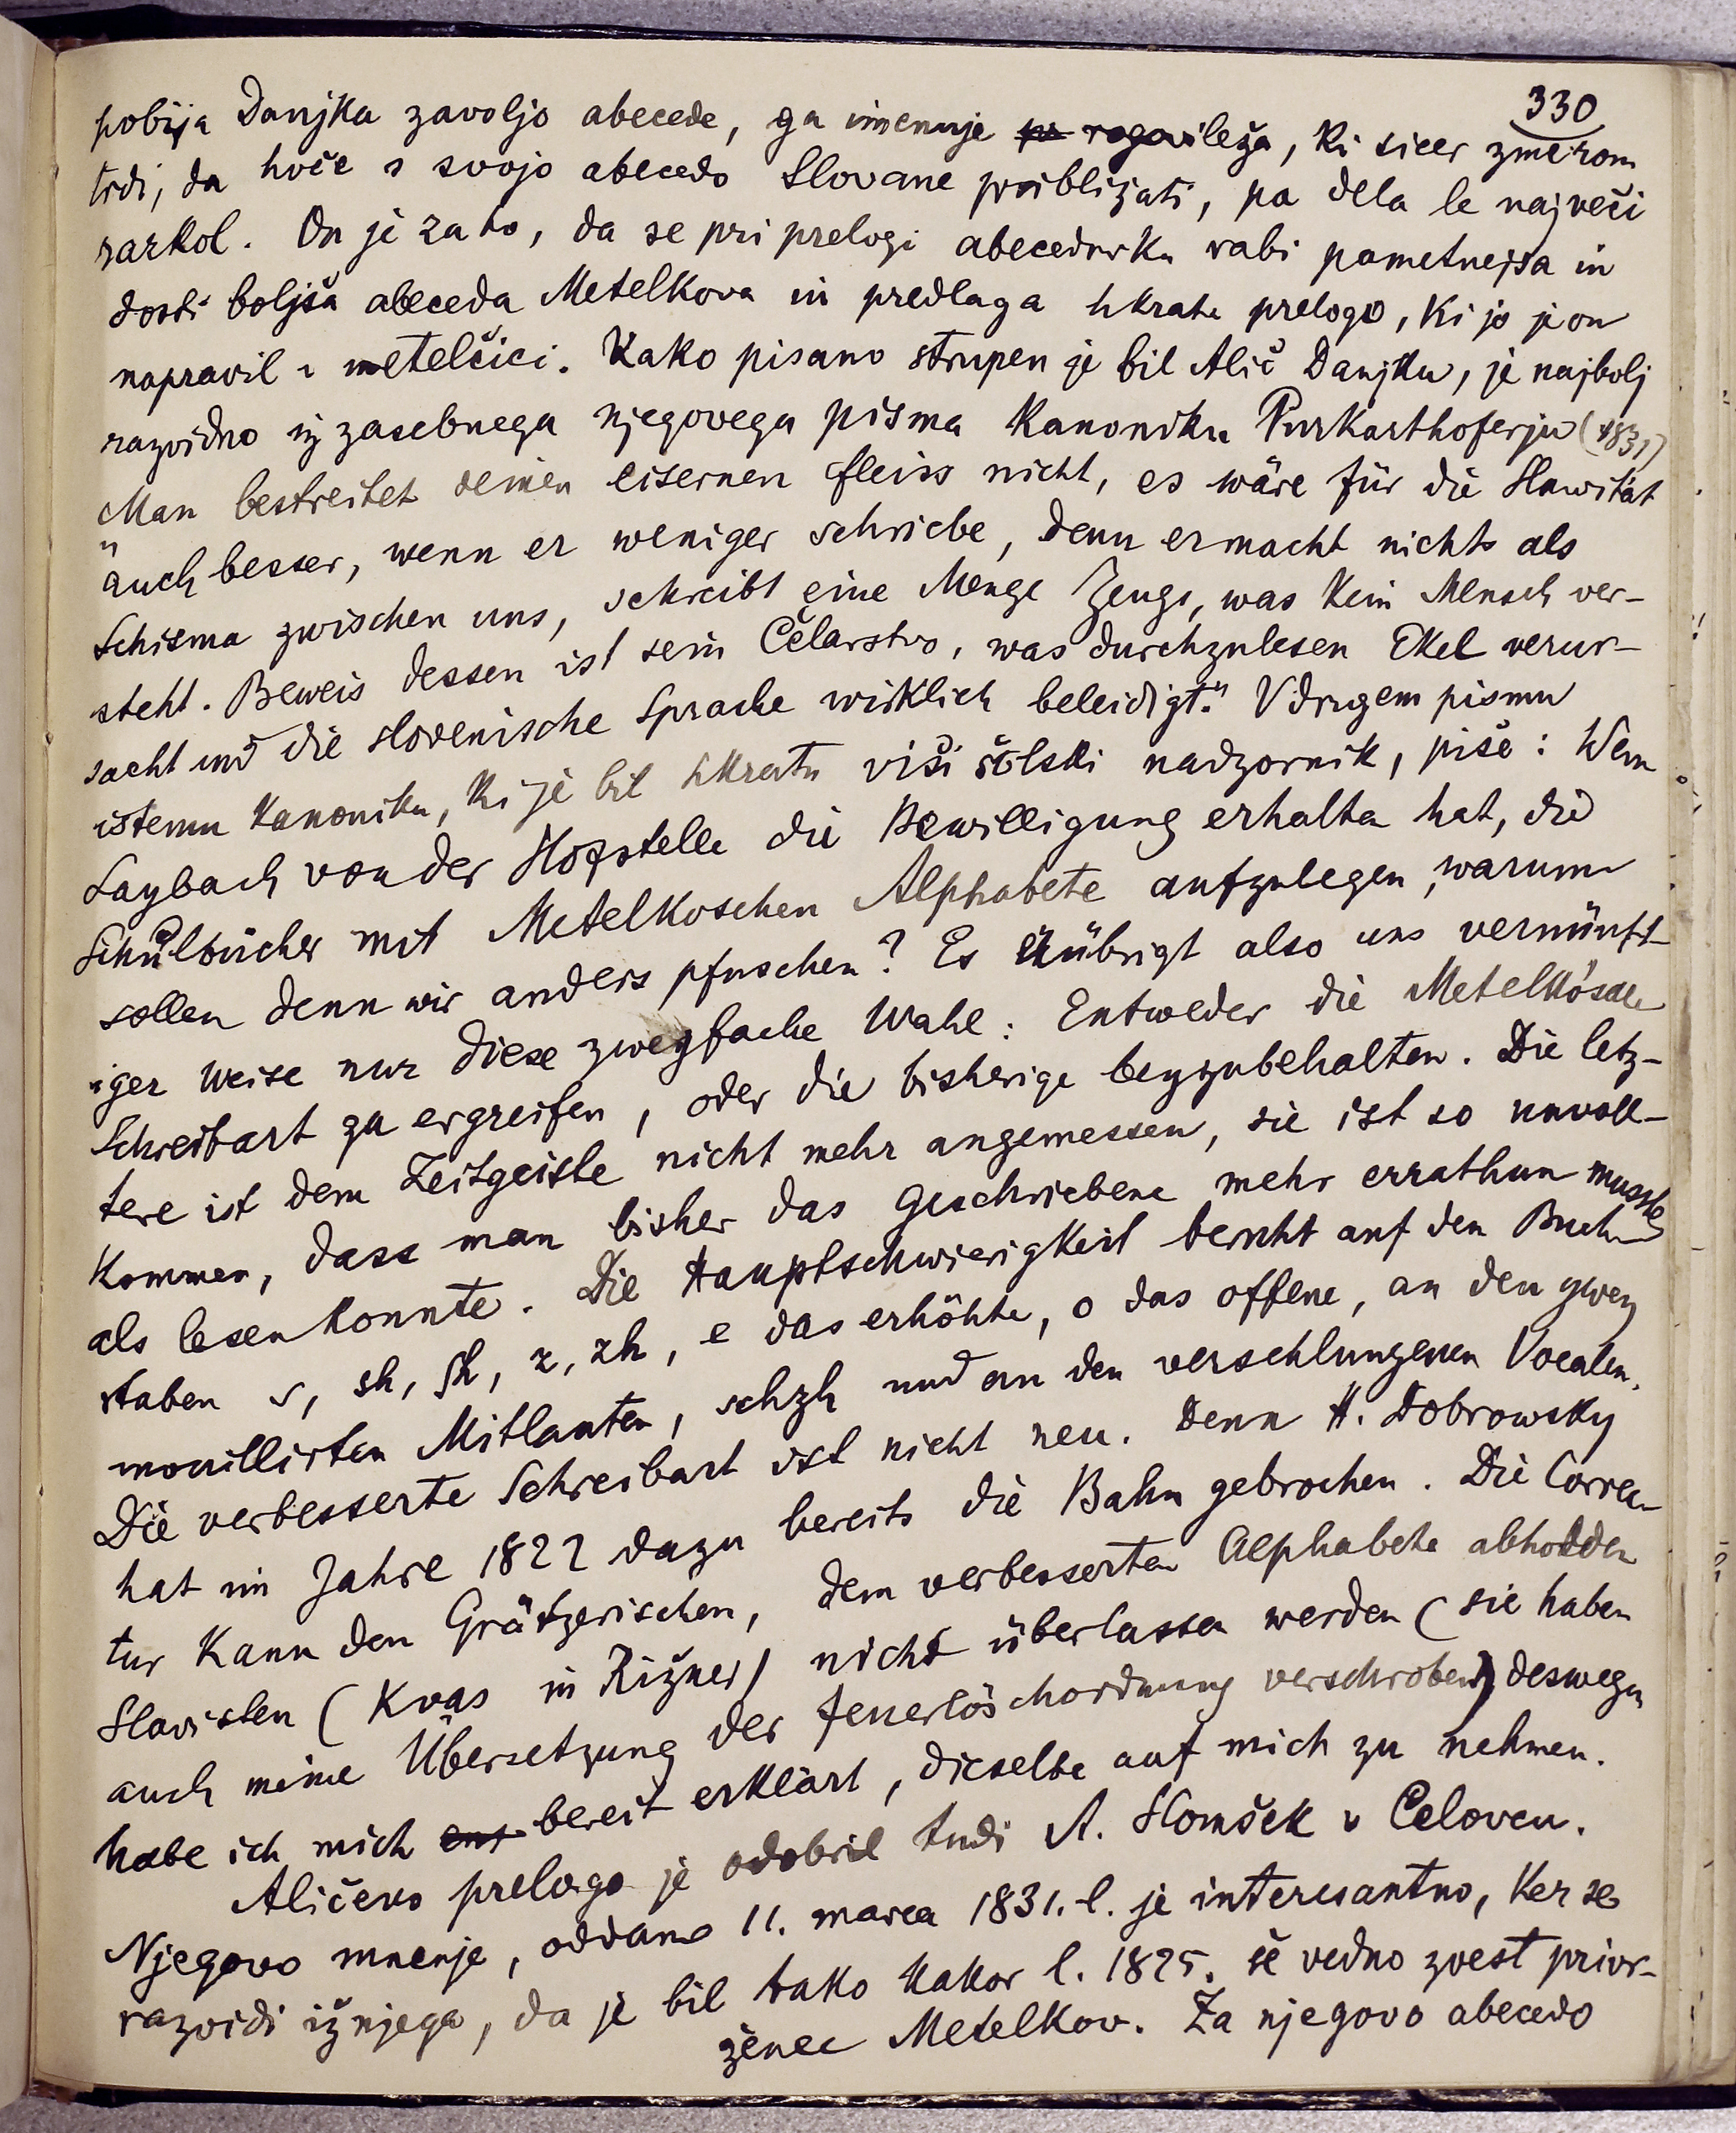 330
pobija Danjka zavoljo abecede, ga imenuje rogovileža, ki sicer zmerom
trdi, da hoče s svojo abecedo Slovane približati, pa dela le največi
razkol. On je zato, da se pri prelogi abecednika rabi pametnejša in
dosti boljša abeceda Metelkova in predlaga hkrati prelogo, ki jo je on
napravil v metelčici. Kako pisano strupen je bil Alič Danjku, je najbolj
razvidno iz zasebnega njegovega pisma kanoniku Purkarthoferju (1831)
„Man bestreitet seinen eisernen Fleiss nicht, es wäre für die Slawität
auch besser, wenn er weniger schriebe, denn er macht nichts als
Schisma zwischen uns, schreibt eine Menge Zeugs, was kein Mensch ver-
steht. Beweis dessen ist sein Čelarstvo, was durchzulesen Ekel verur-
sacht und die slovenische Sprache wirklich beleidigt." V drugem pismu
istemu kanoniku, ki je bil hkratu viši šolski nadzornik, piše: Wenn
Laybach von der Hofstelle die Bewilligung erhalten hat, die
Schulbücher mit Metelkoschen Alphabete aufzulegen, warum
sollen denn wir anders pfuschen? Es erübrigt also uns vernünft-
iger Weise nur diese zweyfache Wahl: Entweder die Metelko'sche
Schreibart zu ergreifen, oder die bisherige beyzubehalten. Die letz-
tere ist dem Zeitgeiste nicht mehr angemessen, sie ist so unvoll-
kommen, dass man bisher das Geschriebene mehr errathen musste
als lesen konnte. Die Hauptschwierigkeit beruht auf den Buch-
staben s, sh, ſh, z, zh, e das erhöhte, o das offene, an den zwey
mouillirten Mitlauten, schzh und an den verschlungenen Vocalen.
Die verbesserte Schreibart ist nicht neu. Denn H. Dobrowsky
hat im Jahre 1822 dazu bereits die Bahn gebrochen. Die Correc-
tur kann den Grätzerischen, dem verbesserten Alphabete abholden
Slavisten (Kvas in Rižner) nicht überlassen werden (sie haben
auch meine Übersetzung der Feuerlöschordnung verschroben) deswegen
habe ich mich bereit erklärt, dieselbe auf mich zu nehmen.
Aličevo prelogo je odobril tudi A. Slomšek v Celovcu.
Njegovo mnenje, oddano 11. marca 1831. l. je interesantno, ker se
razvidi iž njega, da je bil tako kakor l. 1825. še vedno zvest privr-
ženec Metelkov. Za njegovo abecedo